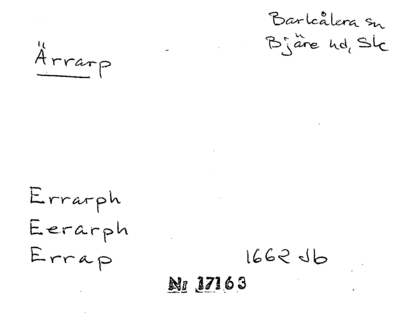 Ärrarp
Barkåkra sn
Bjäre hd, Sk
Errarph
Eerarph
Errap 1662 Jb
Nr 17163